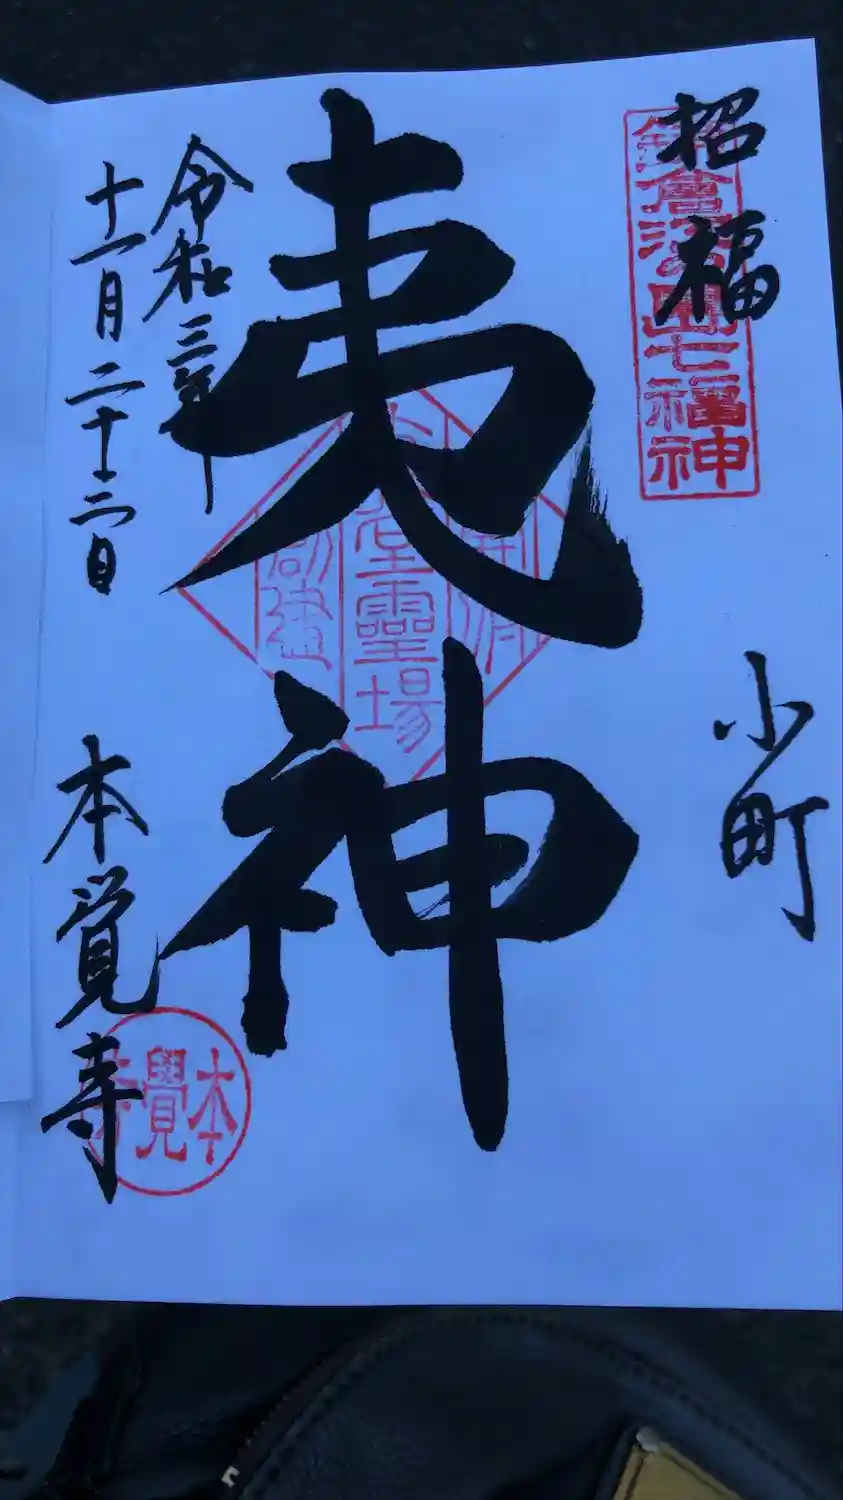 招福
鎌倉江島七福神
小町
夷神
夷堂靈場
創建
令和三年
十一月二十三日
本覚寺
本覺寺